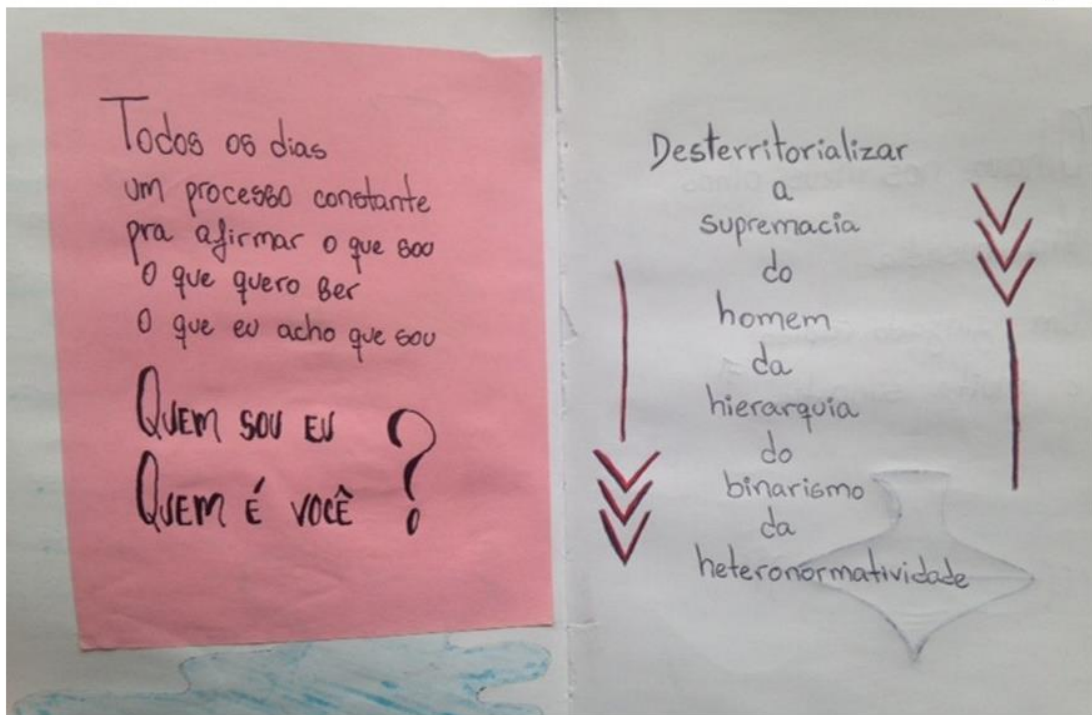 Todos os dias
um processo constante
pra afirmar o que sou
O que quero ser
O que eu acho que sou
QUEM SOU EU
QUEM É VOCÊ ?
Desterritorializar
a
supremacia
do
homem
da
hierarquia
do
binarismo
da
heteronormatividade